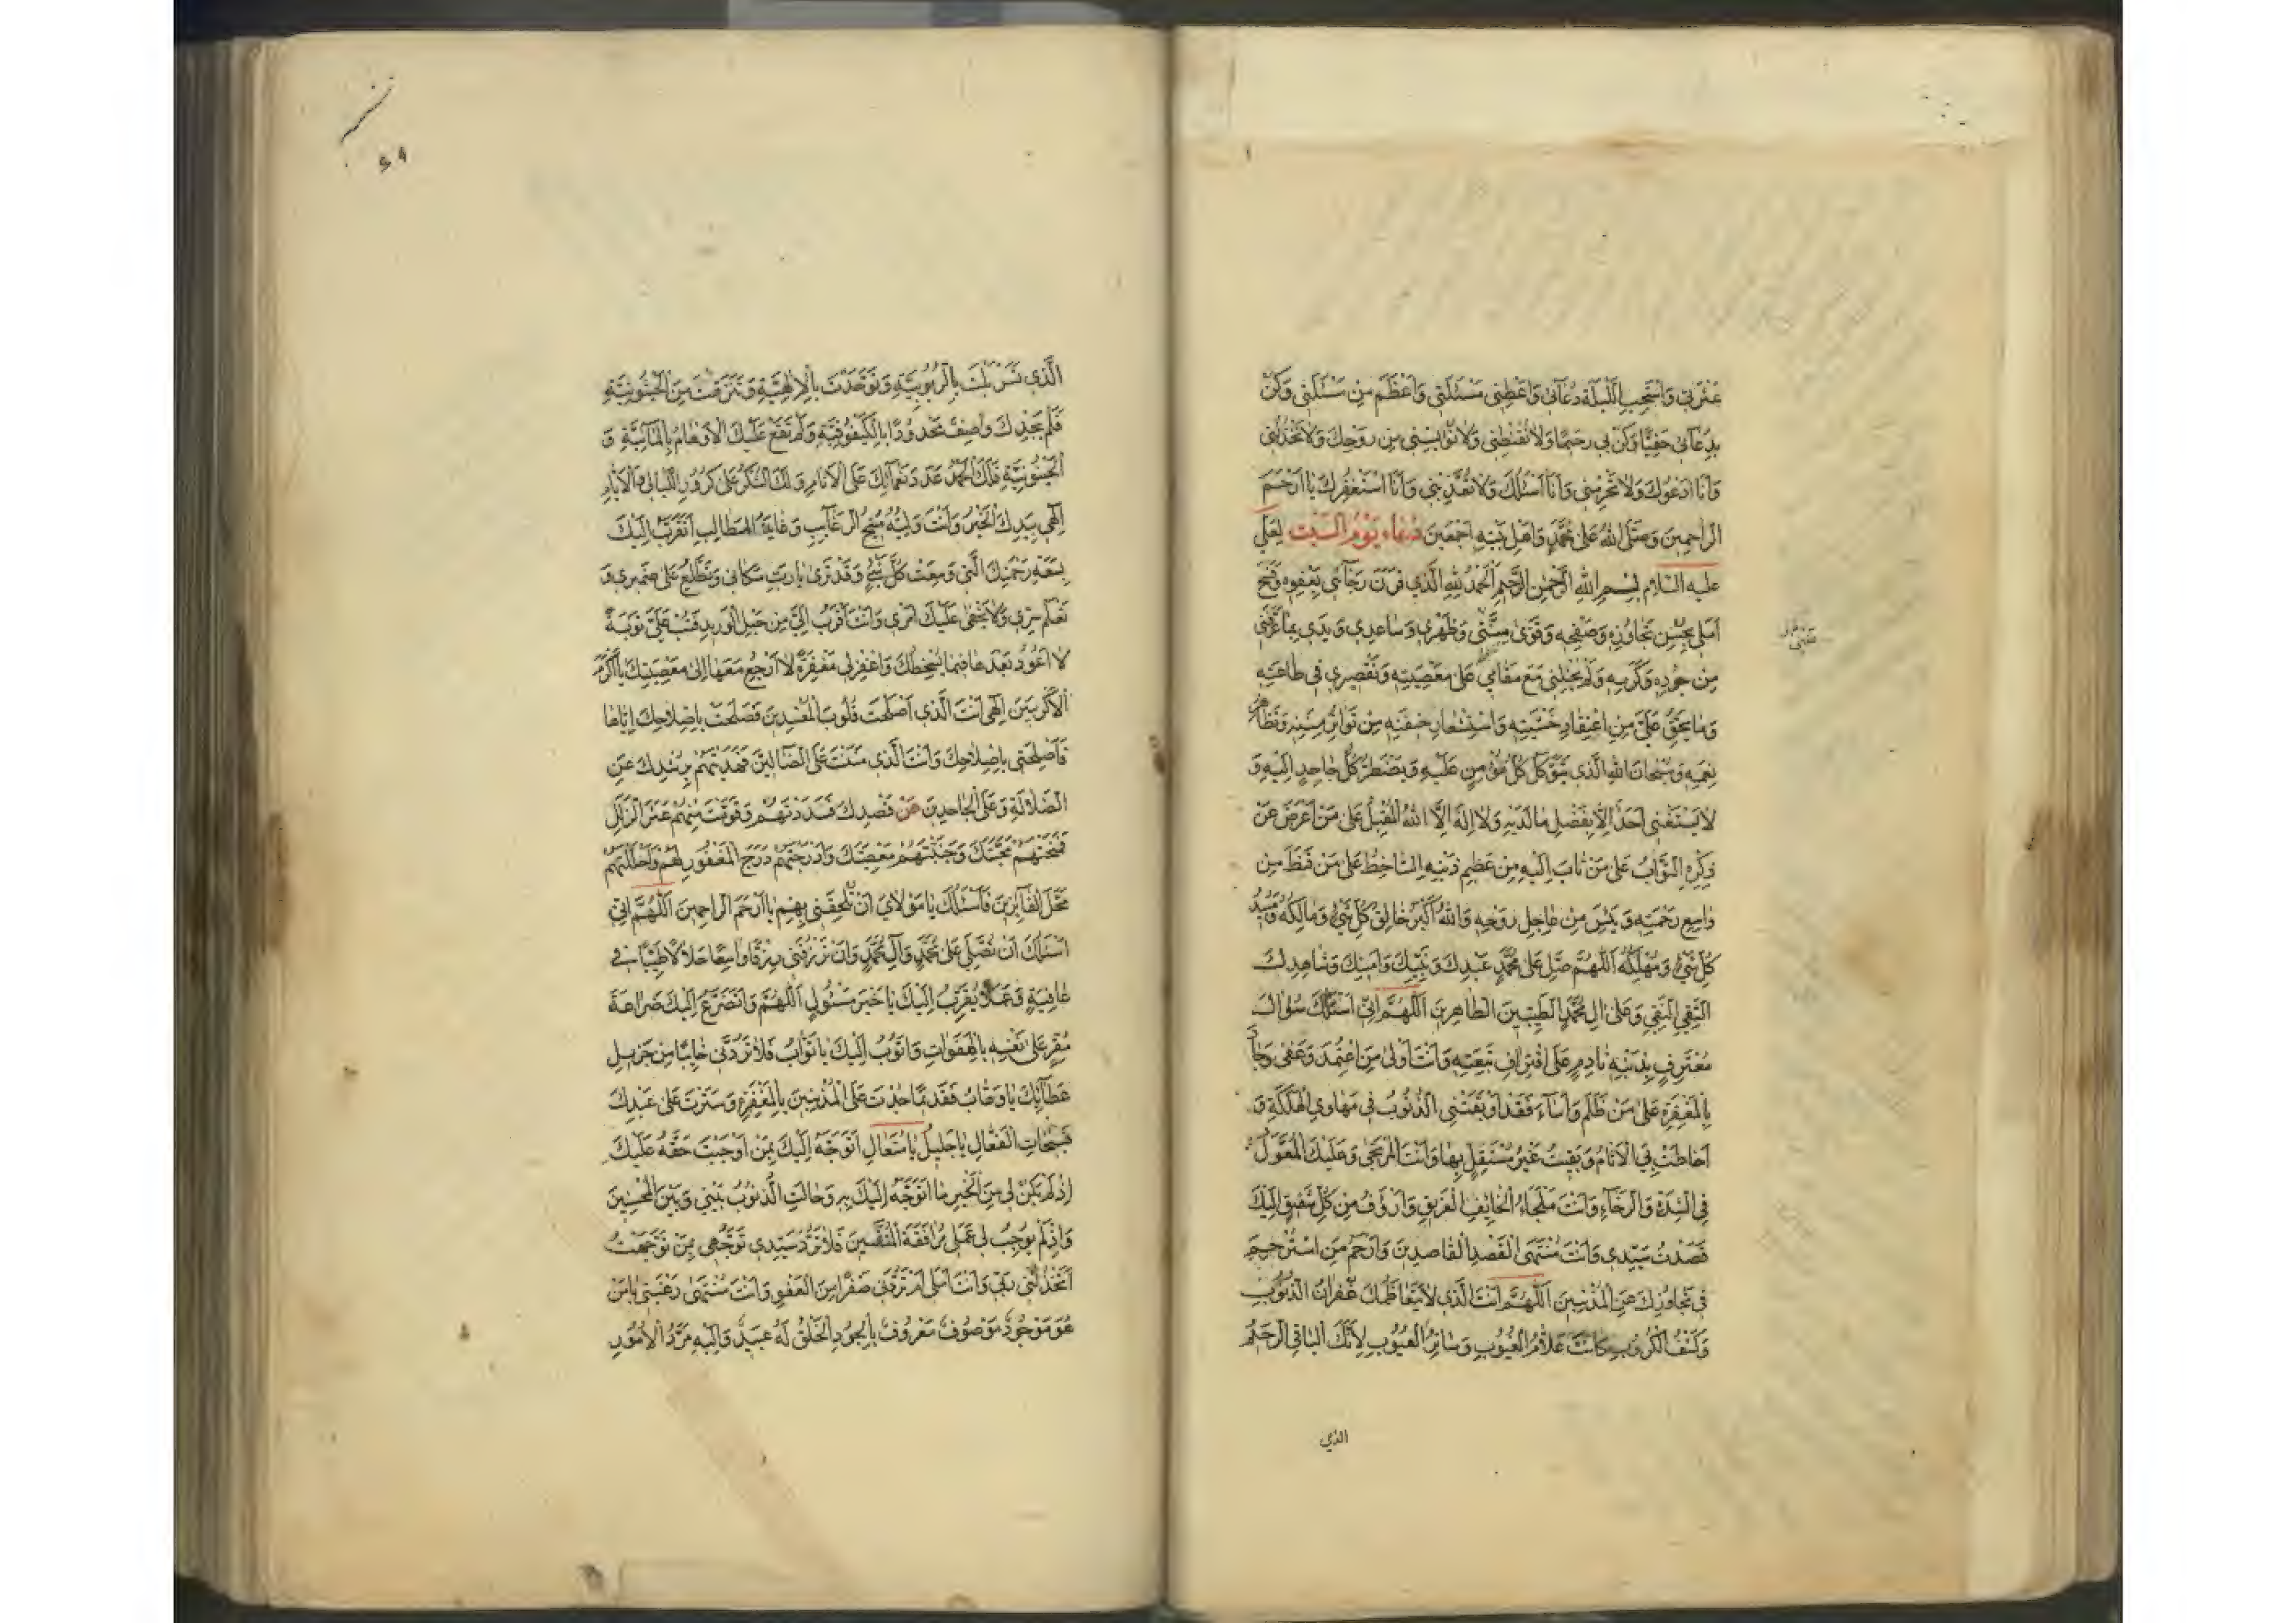 عَثْرَتي وَاسْتَجِبِ اللَّيْلَةَ دُعَآئي وَاَعْطِني مَسْئَلَتي وَاَعْظَمَ مِنْ مَسْئَلَتي وَكُنْ
بِدُعَآئي حَفِيًّا وَكُنْ بي رَحيمًا وَلا تُقَنِّطْني وَلا تُؤْيِسْني مِنْ رَوْحِكَ وَلا تَخْذُلْني
وَاَنَا اَدْعُوكَ وَلا تَحْرِمْني وَاَنَا اَسْئَلُكَ وَلا تُعَذِّبْني وَاَنَا اَسْتَغْفِرُكَ يا اَرْحَمَ
الرّاحِمينَ وَصَلَّى اللهُ عَلى مُحَمَّدٍ وَاَهْلِ بَيْتِهِ اَجْمَعينَ دُعاء يَوْمُ السَّبْت لِعَلي
عليه السّلام بِسْمِ اللهِ الرَّحْمنِ الرَّحيمِ اَلْحَمْدُ لِلّهِ الَّذي قَرَنَ رَجآئي بِعَفْوِهِ وَفَسَحَ
اَمَلي بِحُسْنِ تَجاوُزِهِ وَصَفْحِهِ وَقَوّى مَتْني وَظَهْري وَساعِدي وَيَدي بِما عَرَّفَني
مِنْ جُودِهِ وَكَرَمِهِ وَلَمْ يُخْلِني مَعَ مَقامي عَلى مَعْصِيَتِهِ وَتَقْصيري في طاعَتِهِ
وَما يَحِقُّ عَلَيَّ مِنِ اعْتِقادِ خَشْيَتِهِ وَاسْتِشْعارِ خيفَتِهِ مِنْ تَواتُرِ مِنَنِهِ وَتَظاهُرِ
نِعَمِهِ وَسُبْحانَ اللهِ الَّذي يَتَوَكَّلُ كُلُّ مُؤْمِنٍ عَلَيْهِ وَيَضْطَرُّ كُلُّ جاحِدٍ اِلَيْهِ وَ
لا يَسْتَغْني اَحَدٌ اِلاّ بِفَضْلِ ما لَدَيْهِ وَلا اِلهَ اِلاَّ اللهُ الْمُقْبِلُ عَلى مَنْ اَعْرَضَ عَنْ
ذِكْرِهِ التَّوّابُ عَلى مَنْ تابَ اِلَيْهِ مِنْ عَظيمِ ذَنْبِهِ السّاخِطُ عَلى مَنْ قَنَطَ مِنْ
واسِعِ رَحْمَتِهِ وَيَئِسَ مِنْ عاجِلِ رَوْحِهِ وَاللهُ اَكْبَرُ خالِقُ كُلِّ شَيْءٍ وَمالِكُهُ وَمُبيدُ
كُلِّ شَيْءٍ وَمُهْلِكُهُ اَللّهُمَّ صَلِّ عَلى مُحَمَّدٍ عَبْدِكَ وَنَبِيِّكَ وَاَمينِكَ وَشاهِدِكَ
التَّقِيِّ النَّقِيِّ وَعَلى الِ مُحَمَّدٍ الطَّيِّبينَ الطّاهِرينَ اَللّهُمَّ اِنّي اَسْئَلُكَ سُؤالَ
مُعْتَرِفٍ بِذَنْبِهِ نادِمٍ عَلَى اقْتِرافِ تَبِعَتِهِ وَاَنْتَ اَوْلى مَنِ اعْتُمِدَ وَعَفى وَجادَ
بِالْمَغْفِرَةِ عَلى مَنْ ظَلَمَ وَاَسآءَ فَقَدْ اَوْبَقَتْني الذُّنُوبُ في مَهاوِي الْهَلَكَةِ وَ
اَحاطَتْ بِيَ الْاثامُ وَبَقيتُ غَيْرَ مُسْتَقِلٍّ بِها وَاَنْتَ الْمُرْتَجى وَعَلَيْكَ الْمُعَوَّلُ
فِي الشِّدَّةِ وَالرَّخآءِ وَاَنْتَ مَلْجَاءُ الْخآئِفِ الْغَريقِ وَاَرْؤَفُ مِنْ كُلِّ شَفيقٍ اِلَيْكَ
قَصَدْتُ سَيِّدي وَاَنْتَ مُنْتَهَى الْقَصْدِ الْقاصِدينَ وَاَرْحَمُ مَنِ اسْتُرْحِمَ
في تَجاوُزِكَ عَنِ الْمُذْنِبينَ اَللّهُمَّ اَنْتَ الَّذي لا يَتَعاظَمُكَ غُفْرانُ الذُّنُوبِ
وَكَشْفُ الْكُرُوبِ وَاَنْتَ عَلاّمُ الْغُيُوبِ وَساتِرُ الْعُيُوبِ لِاَنَّكَ الْباقِي الرَّحيمُ
الذي
الَّذي تَسَرْبَلْتَ بِالرُّبُوبِيَّةِ وَتَوَحَّدْتَ بِالْاِلهِيَّةِ وَتَنَزَّهْتَ مِنَ الْحَيْثُوثِيَّةِ
فَلَمْ يَجِدْكَ واصِفٌ مَحْدُودًا بِالْكَيْفُوفِيَّةِ وَلَمْ تَقَعْ عَلَيْكَ الْاَوْهامُ بِالْمآئِيَّةِ وَ
الْحَيْثُوثِيَّةِ فَلَكَ الْحَمْدُ عَدَدَ نَعْمآئِكَ عَلَى الْاَنامِ وَلَكَ الشُّكْرُ عَلى كُرُورِ اللَّيالي وَالْاَيّامِ
اِلهي بِيَدِكَ الْخَيْرُ وَاَنْتَ وَلِيُّهُ مُتيحُ الرَّغآئِبِ وَغايَةُ الْمَطالِبِ اَتَقَرَّبُ اِلَيْكَ
بِسَعَةِ رَحْمَتِكَ الَّتي وَسِعَتْ كُلَّ شَيْءٍ وَقَدْ تَرى يا رَبِّ مَكاني وَتَطَّلِعُ عَلى ضَميري وَ
تَعْلَمُ سِرّي وَلا يَخْفى عَلَيْكَ اَمْري وَاَنْتَ اَقْرَبُ اِلَيَّ مِنْ حَبْلِ الْوَريدِ فَتُبْ عَلَيَّ تَوْبَةً
لا اَعُودُ بَعْدَها فيما يُسْخِطُكَ وَاغْفِرْ لي مَغْفِرَةً لا اَرْجِعُ مَعَها اِلى مَعْصِيَتِكَ يا اَكْرَمَ
الْاَكْرَمينَ اِلهي اَنْتَ الَّذي اَصْلَحْتَ قُلُوبَ الْمُفْسِدينَ فَصَلَحَتْ بِاِصْلاحِكَ اِيّاها
فَاَصْلِحْني بِاِصْلاحِكَ وَاَنْتَ الَّذي مَنَنْتَ عَلَى الضّآلّينَ فَهَدَيْتَهُمْ بِرُشْدِكَ عَنِ
الضَّلالَةِ وَعَلَى الْجاحِدينَ عَنْ قَصْدِكَ فَسَدَّدْتَهُمْ وَقَوَّمْتَ مِنْهُمْ عَثَرَ الزَّلَلِ
فَمَنَحْتَهُمْ مَحَبَّتَكَ وَجَنَّبْتَهُمْ مَعْصِيَتَكَ وَاَدْرَجْتَهُمْ دَرَجَ الْمَغْفُورِ لَهُمْ وَاَحْلَلْتَهُمْ
مَحَلَّ الْفآئِزينَ فَاَسْئَلُكَ يا مَوْلايَ اَنْ تُلْحِقَني بِهِمْ يا اَرْحَمَ الرّاحِمينَ اَللّهُمَّ اِنّي
اَسْئَلُكَ اَنْ تُصَلِّيَ عَلى مُحَمَّدٍ وَآلِ مُحَمَّدٍ وَاَنْ تَرْزُقَني رِزْقًا واسِعًا حَلالاً طَيِّبًا في
عافِيَةٍ وَعَمَلاً يُقَرِّبُ اِلَيْكَ يا خَيْرَ مَسْئُولٍ اَللّهُمَّ وَاَتَضَرَّعُ اِلَيْكَ ضَراعَةَ
مُقِرٍّ عَلى نَفْسِهِ بِالْهَفَواتِ وَاَتُوبُ اِلَيْكَ يا تَوّابُ فَلا تَرُدَّني خآئِبًا مِنْ جَزيلِ
عَطآئِكَ يا وَهّابُ فَقَديمًا جُدْتَ عَلَى الْمُذْنِبينَ بِالْمَغْفِرَةِ وَسَتَرْتَ عَلى عَبْدِكَ
قَبيحاتِ الْفَعالِ يا جَليلُ يا مُتَعالِ اَتَوَجَّهُ اِلَيْكَ بِمَنْ اَوْجَبْتَ حَقَّهُ عَلَيْكَ
اِذْ لَمْ يَكُنْ لي مِنَ الْخَيْرِ ما اَتَوَجَّهُ اِلَيْكَ بِهِ وَحالَتِ الذُّنُوبُ بَيْني وَبَيْنَ الْمُحْسِنينَ
وَاِذْ لَمْ يُوجِبْ لي عَمَلي مُرافَقَةَ الْمُتَّقينَ فَلا تَرُدَّ سَيِّدي تَوَجُّهي بِمَنْ تَوَجَّهْتُ
اَتَخْذُلُني رَبّي وَاَنْتَ اَمَلي اَمْ تَرُدُّني صِفْرًا مِنَ الْعَفْوِ وَاَنْتَ مُنْتَهى رَغْبَتي يا مَنْ
هُوَ مَوْجُودٌ مَوْصُوفٌ مَعْرُوفٌ بِالْجُودِ الْخَلْقُ لَهُ عَبيدٌ وَاِلَيْهِ مَرَدُّ الْاُمُورِ